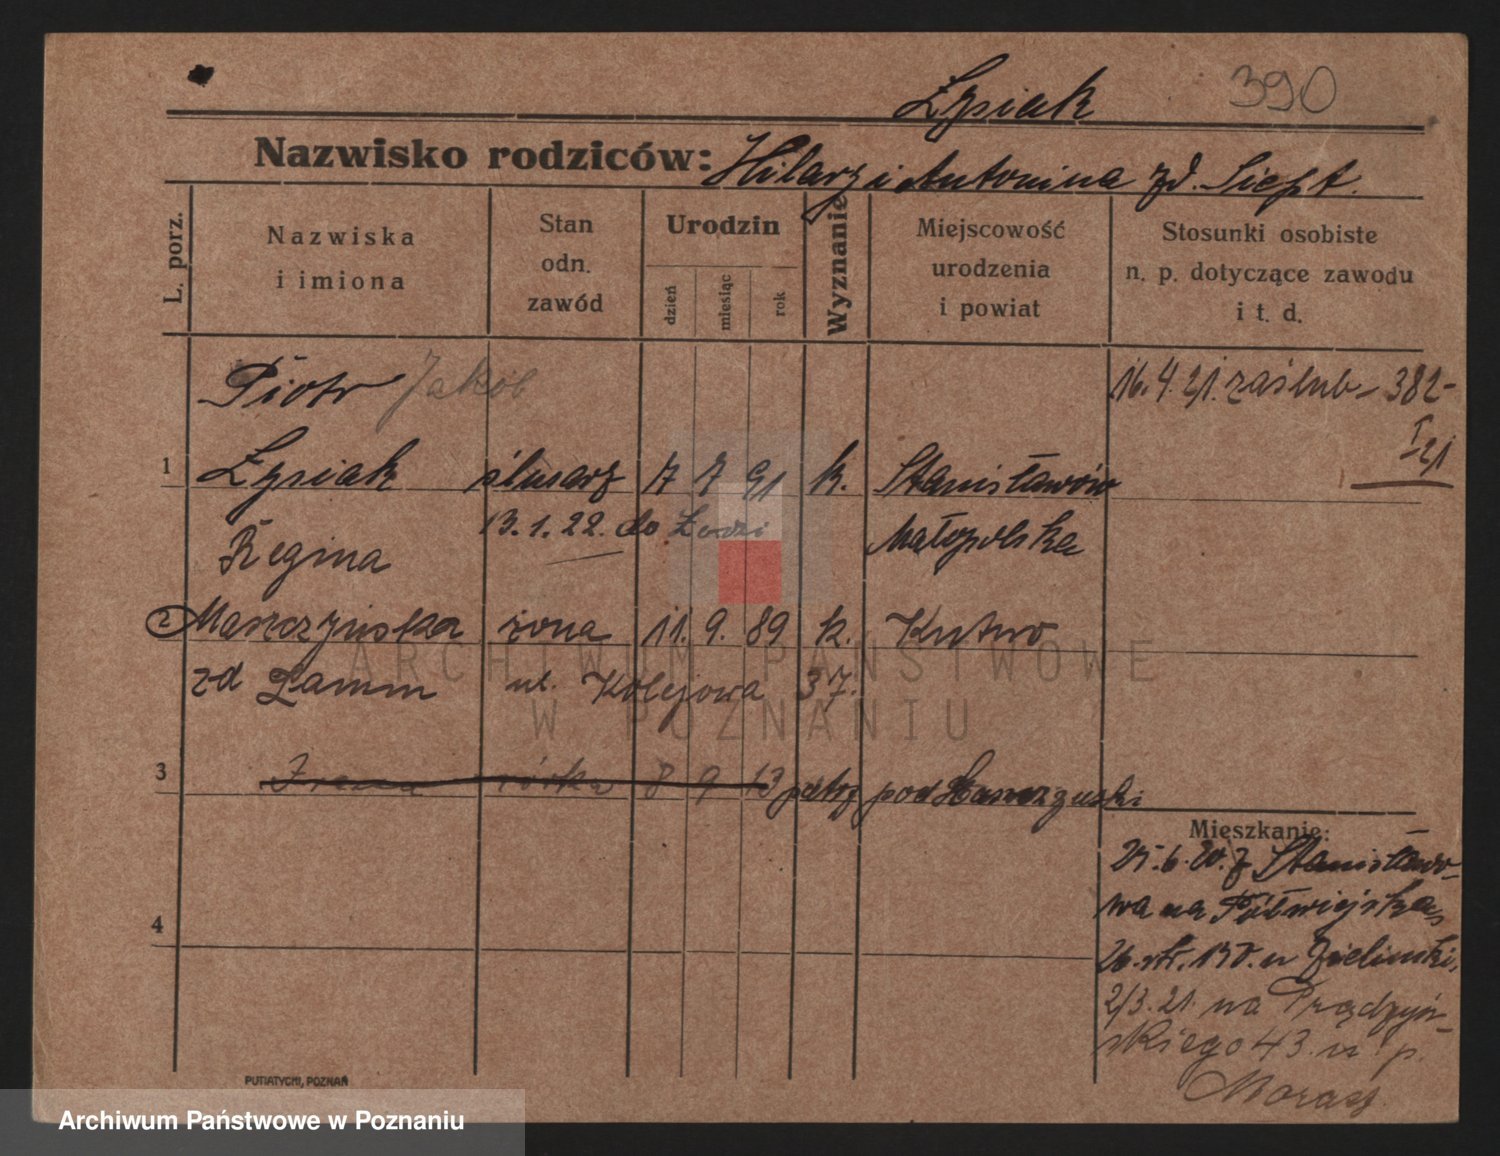 Łysiak 390
Nazwisko rodziców: Hilary i Antonina zd.
L. porz.
Nazwiska
i imiona
Stan
odn.
zawód
Urodzin
dzień
miesiąc
rok
Wyznanie
Miejscowość
urodzenia
i powiat
Stosunki osobiste
n. p. dotyczące zawodu
i t. d.
Piotr Jakob
16.4.21. zaślub - 382-
I
21
1 Łysiak ślusarz 7 7 91 k. Stanisławów
13.1.22. do Łodzi
Regina Małopolska
2 Maszczyńska żona 11. 9. 89 k. Kutno
zd Lamm ul. Kolejowa 37.
3 Irena córka 8 9 13 patrz pod
Mieszkanie:
25.6.20. z Stanisławo-
wa na Półwiejska
26. 130. u Zielinski,
2/3.21. na Prądzyń-
skiego 43. u p.
4
PUTIATYCKI, POZNAŃ
ARCHIWUM PAŃSTWOWE
W POZNANIU
Archiwum Państwowe w Poznaniu